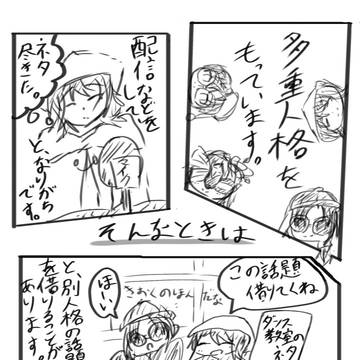 多重人格を
もっています。
配信などを
して
ネタ
尽きた。
マイク
と、なりがち
です。
そんなときは
この話題
借りてくね
ダンス
教室の
ネタ
きおくのほんだな
ほーい
と、別人格の話題
を借りることが
あります。